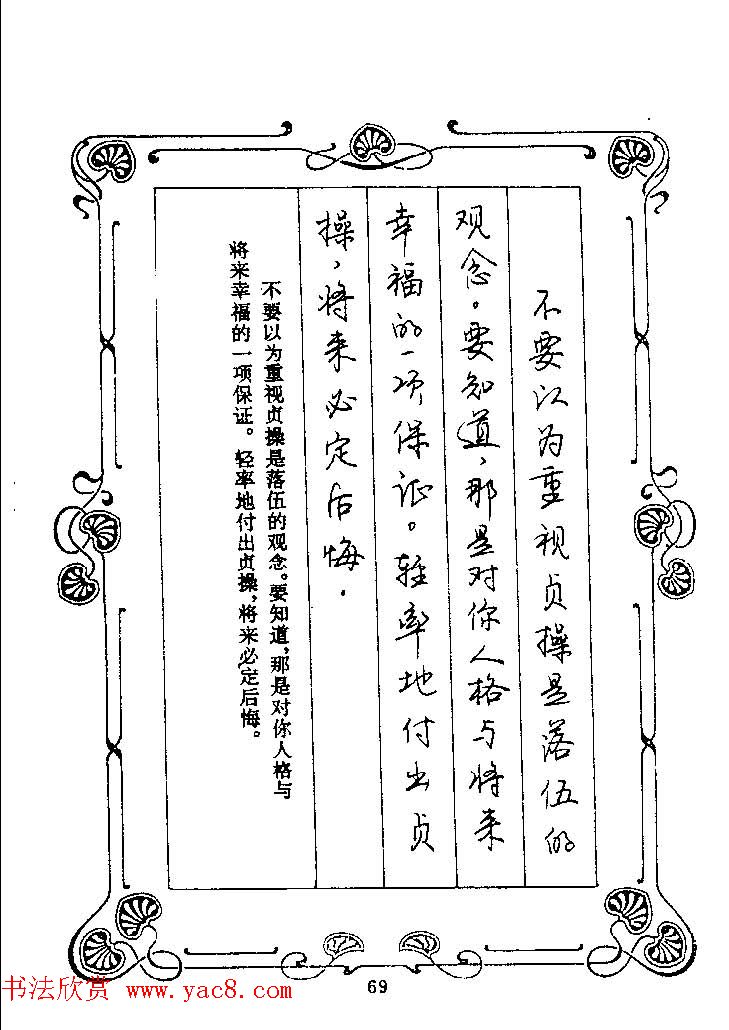 不要以为重视贞操是落伍的
观念。要知道，那是对你人格与将来
幸福的一项保证。轻率地付出贞
操，将来必定后悔.
不要以为重视贞操是落伍的观念。要知道，那是对你人格与
将来幸福的一项保证。轻率地付出贞操，将来必定后悔。
69
书法欣赏 www.yac8.com